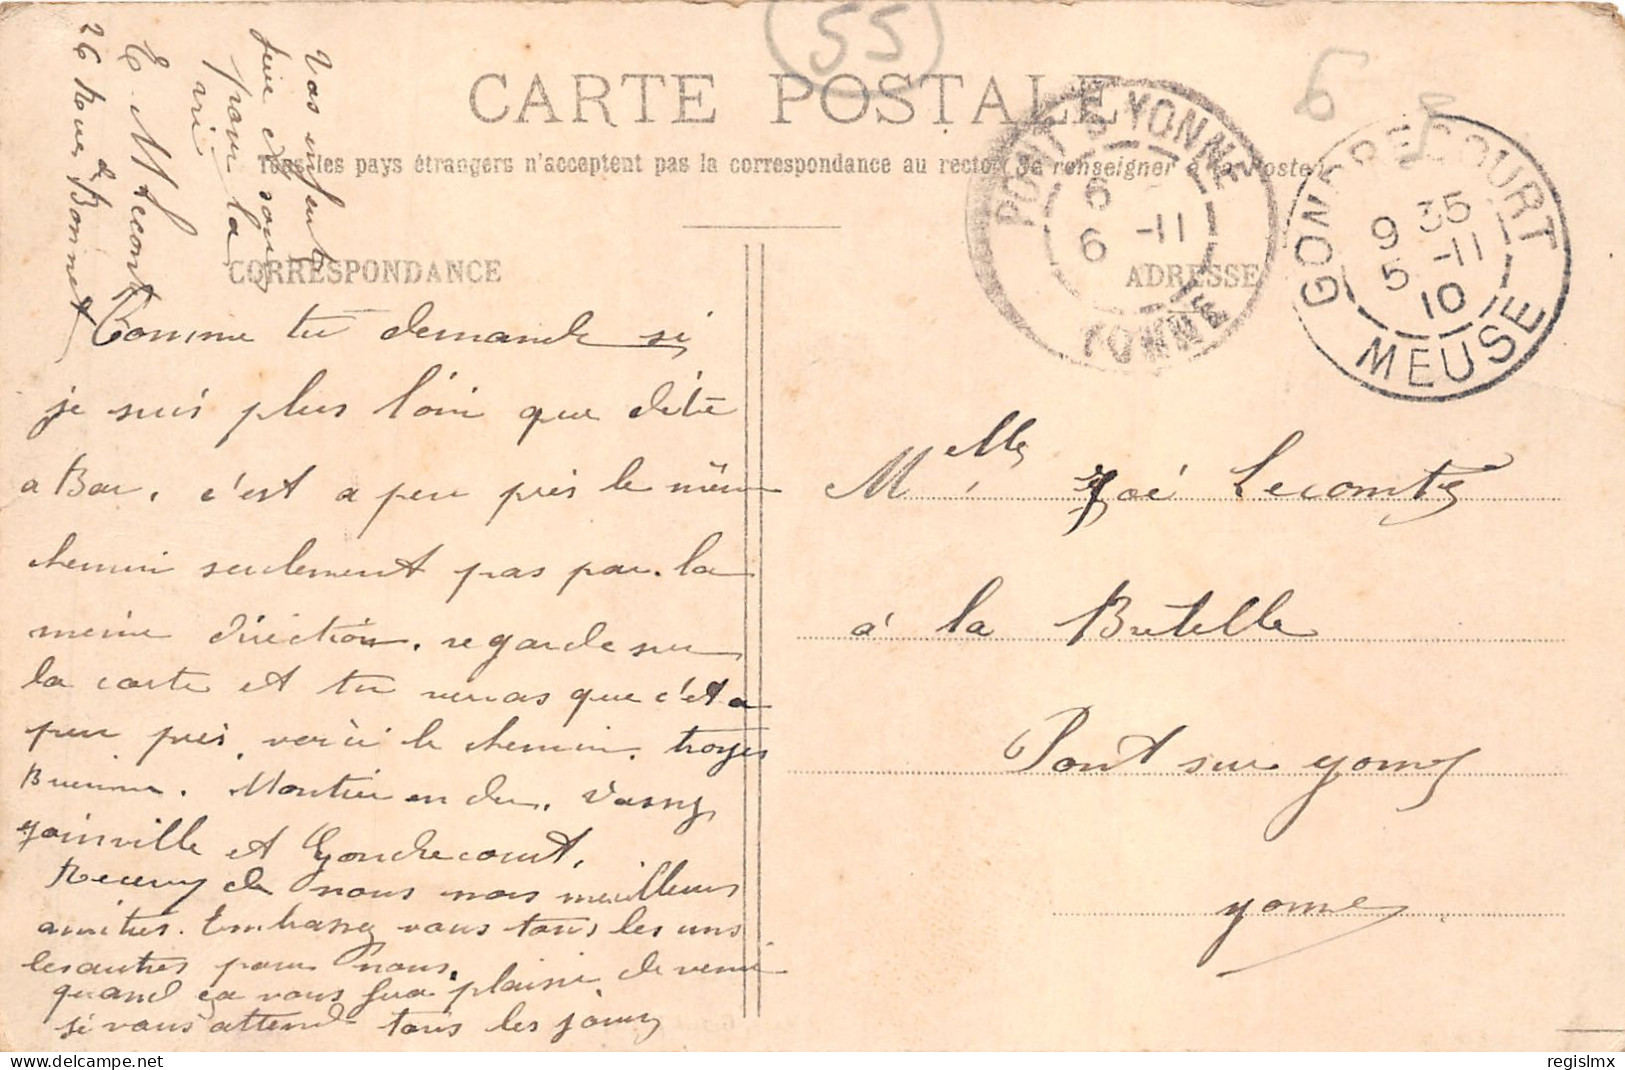 55
6
CARTE POSTALE
Tous les pays étrangers n'acceptent pas la correspondance au recto. Se renseigner à la Poste
PONT S YONNE
6
6 -11
YONNE
GONDRECOURT
9 35
5 -11
10
MEUSE
CORRESPONDANCE
ADRESSE
Comme tu demande si
je suis plus loin que dete
a Bar. c'est a peu près le même
chemin seulement pas par la
même direction. regarde sur
la carte et tu verras que c'est a
peu près voici le chemin. troyes
Brienne. Montier en der. Vassy
Joinville et Gondrecourt.
Recevez de nous nos meilleurs
amities. Embrassez vous tous les uns
les autres pour nous.
quand ça vous fera plaisir de venir
si vous attend tous les jours
Vos enfents
pour la
vie
E M Lecomte
26 Rue de Bonnet
Melle Zoé Lecomte
à la Bretelle
Pont sur yonne
yonne
regislmx